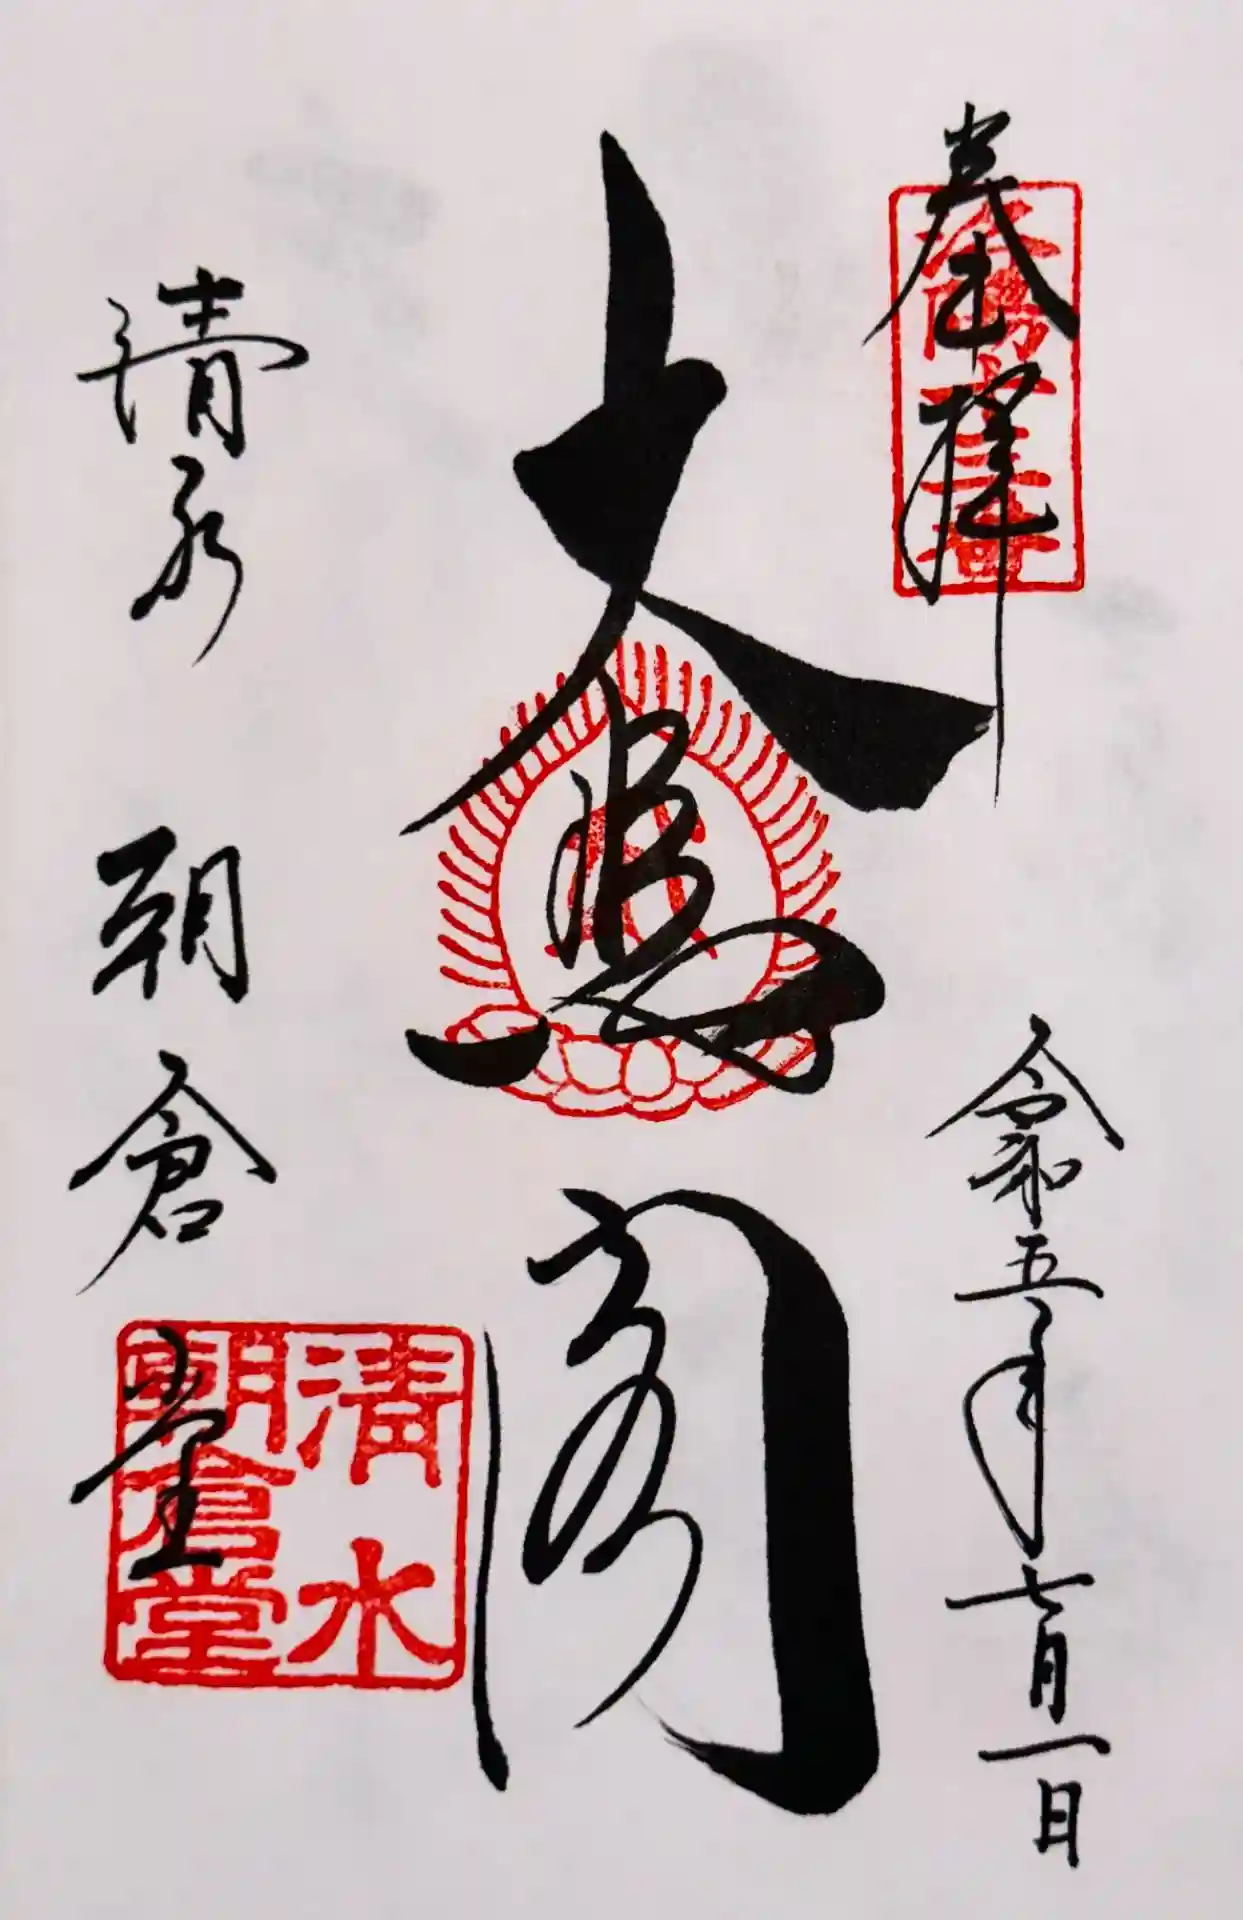 奉拝
洛陽十三番
令和五年七月一日
大悲閣
清水 朝倉堂
清水
朝倉堂